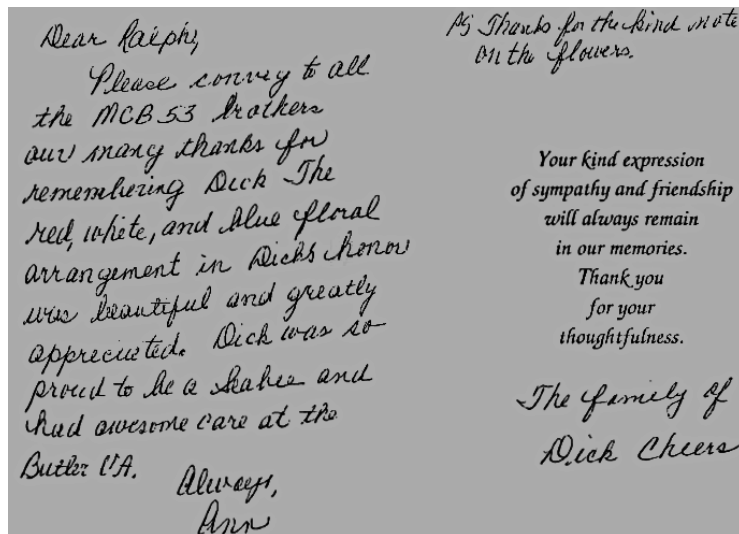 Dear Ralph,
Please convey to all
the MCB 53 brothers
our many thanks for
remembering Dick The
red, white, and blue floral
arrangement in Dicks honor
was beautiful and greatly
appreciated. Dick was so
proud to be a Seabee and
had awesome care at the
Butler VA.
Always,
Ann
PS Thanks for the kind note
on the flowers.
Your kind expression
of sympathy and friendship
will always remain
in our memories.
Thank you
for your
thoughtfulness.
The family of
Dick Cheers